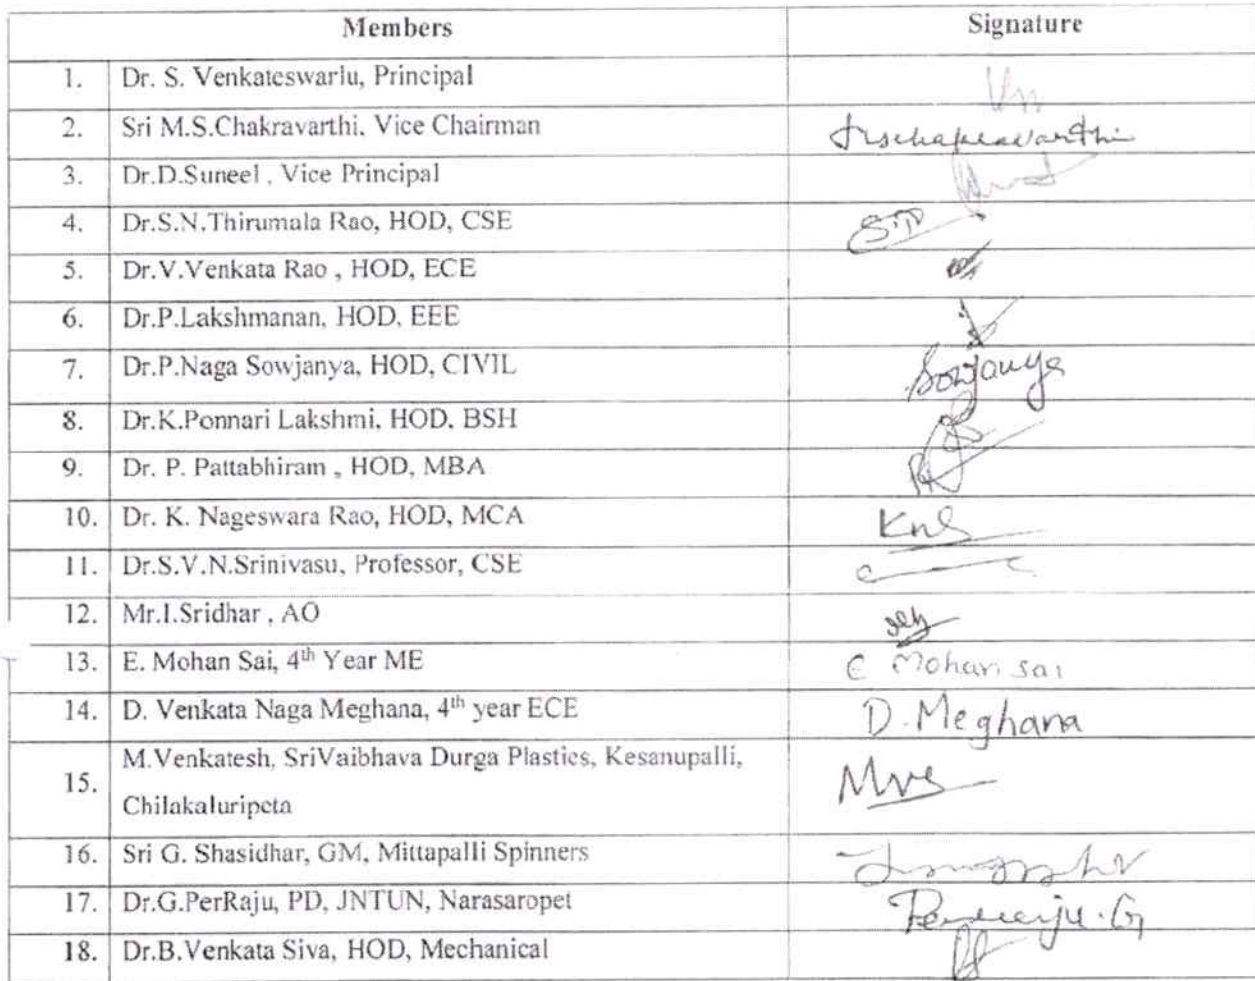 Members Signature
1. Dr. S. Venkateswarlu, Principal
2. Sri M.S.Chakravarthi, Vice Chairman
3. Dr.D.Suneel , Vice Principal
4. Dr.S.N.Thirumala Rao, HOD, CSE
5. Dr.V.Venkata Rao , HOD, ECE
6. Dr.P.Lakshmanan, HOD, EEE
7. Dr.P.Naga Sowjanya, HOD, CIVIL Sowjanya
8. Dr.K.Ponnari Lakshmi, HOD, BSH
9. Dr. P. Pattabhiram , HOD, MBA
10. Dr. K. Nageswara Rao, HOD, MCA
11. Dr.S.V.N.Srinivasu, Professor, CSE
12. Mr.I.Sridhar , AO
13. E. Mohan Sai, 4th Year ME E Mohan sai
14. D. Venkata Naga Meghana, 4th year ECE D. Meghana
15. M.Venkatesh, SriVaibhava Durga Plastics, Kesanupalli,
Chilakaluripeta
16. Sri G. Shasidhar, GM, Mittapalli Spinners
17. Dr.G.PerRaju, PD, JNTUN, Narasaropet
18. Dr.B.Venkata Siva, HOD, Mechanical